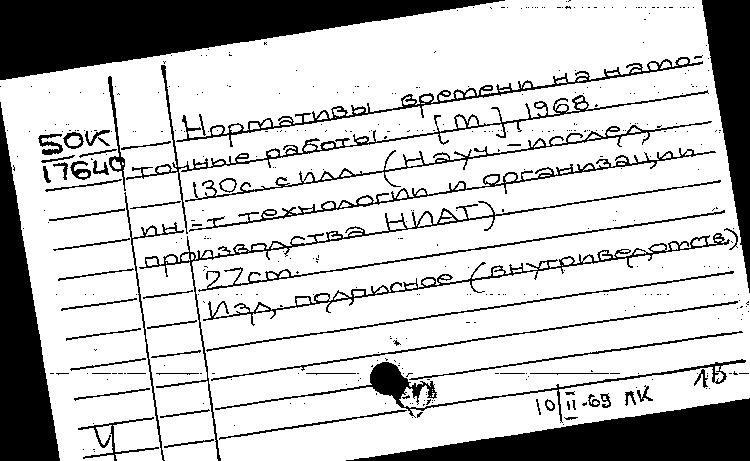 50К
17640
Нормативы времени на нато=
точные работы. [М], 1968.
130с. с илл. (Науч.-исслед.
ин=т технологии и организации
производства НИАТ).
27см.
Изд. подписное (внутриведомств.)
10/II-69 ЛК 1Б
Ч